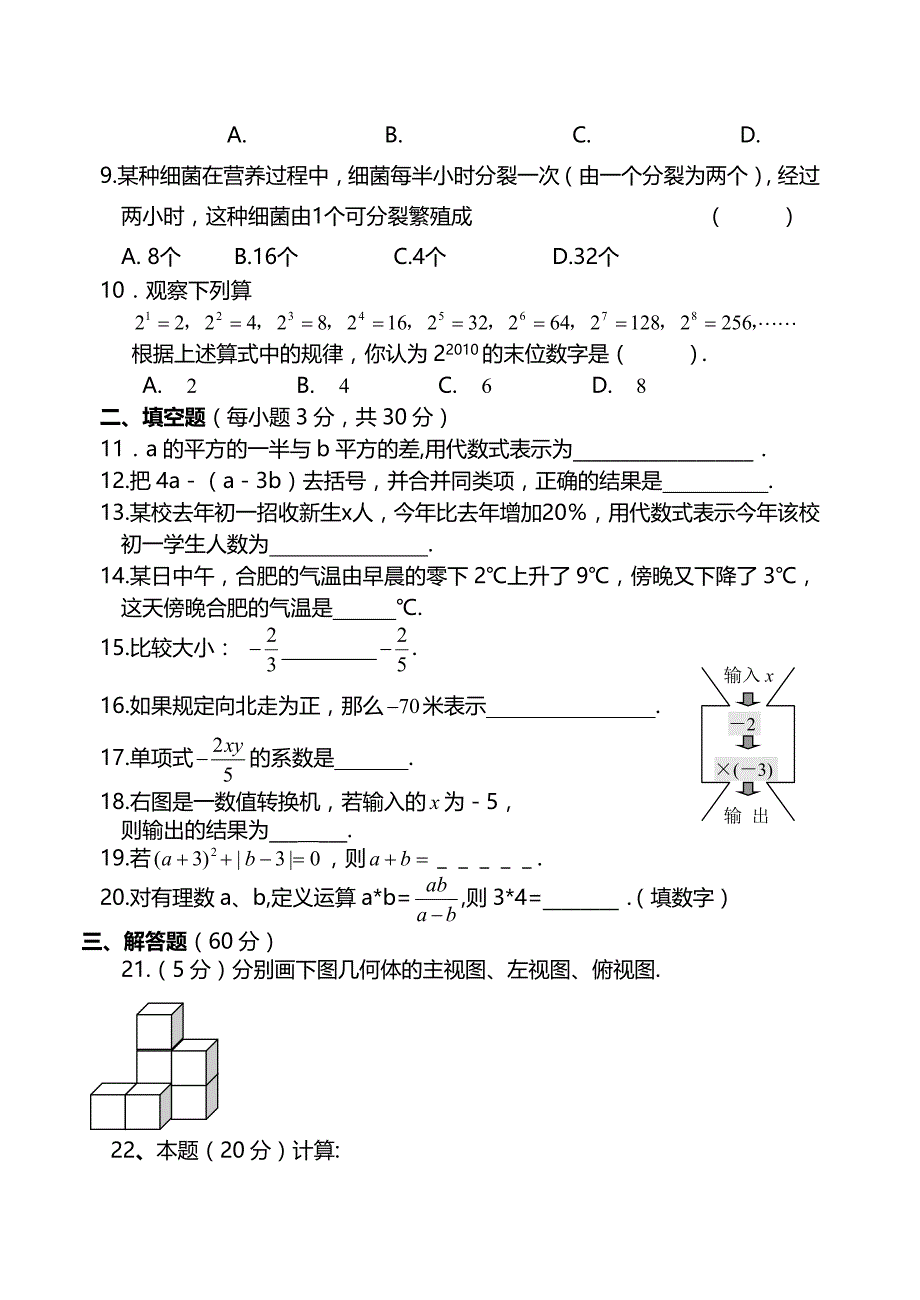 A. B. C. D.
9.某种细菌在营养过程中，细菌每半小时分裂一次（由一个分裂为两个），经过
两小时，这种细菌由1个可分裂繁殖成 （ ）
A. 8个 B.16个 C.4个 D.32个
10．观察下列算
2¹=2，2²=4，2³=8，2⁴=16，2⁵=32，2⁶=64，2⁷=128，2⁸=256，……
根据上述算式中的规律，你认为 2²⁰¹⁰ 的末位数字是（ ）.
A. 2 B. 4 C. 6 D. 8
二、填空题（每小题 3 分，共 30 分）
11．a 的平方的一半与 b 平方的差,用代数式表示为_________________．
12.把 4a－（a－3b）去括号，并合并同类项，正确的结果是__________.
13.某校去年初一招收新生x人，今年比去年增加20%，用代数式表示今年该校
初一学生人数为_______________.
14.某日中午，合肥的气温由早晨的零下 2℃上升了 9℃，傍晚又下降了 3℃，
这天傍晚合肥的气温是______℃.
15.比较大小： −2/3_________−2/5.
16.如果规定向北走为正，那么−70米表示________________.
17.单项式−2xy/5的系数是_______.
18.右图是一数值转换机，若输入的 x 为－5，
则输出的结果为_______.
输入 x
－2
×(－3)
输 出
19.若(a+3)²+|b−3|=0，则a+b= _ _ _ _ _ .
20.对有理数 a、b,定义运算 a*b=ab/(a−b),则 3*4=_______ .（填数字）
三、解答题（60 分）
21.（5 分）分别画下图几何体的主视图、左视图、俯视图.
22、本题（20 分）计算: